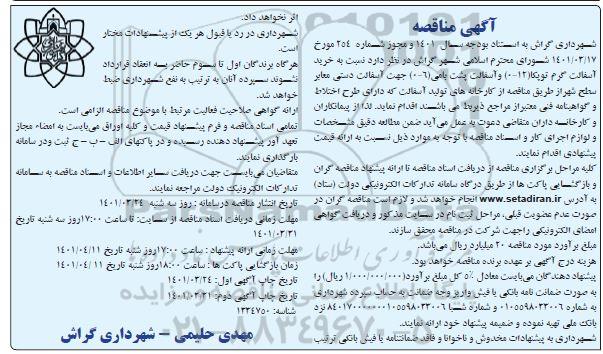 آگهی مناقصه
شهرداری گراش به استناد بودجه سال ۱۴۰۱ و مجوز شماره ۲۵۴ مورخ
۱۴۰۱/۰۳/۱۷ شورای محترم اسلامی شهر گراش در نظر دارد نسبت به خرید
آسفالت گرم توپکا(۱۲-۰) و آسفالت پشت بامی(۶-۰) جهت آسفالت دستی معابر
سطح شهر از طریق مناقصه از کارخانه های تولید آسفالت که دارای طرح اختلاط
و گواهینامه فنی معتبر از مراجع ذیربط می باشند اقدام نمایند. لذا از پیمانکاران
و کارخانه داران متقاضی دعوت به عمل می‌آید ضمن مطالعه دقیق مشخصات
و لوازم اجرای کار و اسناد مناقصه با توجه به موارد ذیل نسبت به ارائه قیمت
پیشنهادی اقدام نمایند.
کلیه مراحل برگزاری مناقصه از دریافت اسناد مناقصه تا ارائه پیشنهاد مناقصه گران
و بازگشایی پاکت ها از طریق درگاه سامانه تدارکات الکترونیکی دولت (ستاد)
به آدرس www.setadiran.ir انجام خواهد شد و لازم است مناقصه گران در
صورت عدم عضویت قبلی، مراحل ثبت نام در سایت مذکور و دریافت گواهی
امضای الکترونیکی را جهت شرکت در مناقصه محقق سازند.
مبلغ برآورد مورد مناقصه ۲۰ میلیارد ریال می‌باشد.
هزینه درج آگهی بر عهده برنده مناقصه خواهد بود.
پیشنهاد دهندگان می‌بایست معادل ۵٪ کل مبلغ برآورد(۱/۰۰۰/۰۰۰/۰۰۰ ریال) را
به صورت ضمانت نامه بانکی یا فیش واریز وجه ضمانت به حساب سپرده شهرداری
به شماره ۰۱۰۵۵۹۸۰۳۳۰۰۶ و شماره شبا نزد
بانک ملی تهیه نموده و ضمیمه پیشنهاد خود ارائه نمایند.
شهرداری به پیشنهادات مخدوش و ناخوانا و فاقد ضمانتنامه یا فیش بانکی ترتیب
اثر نخواهد داد.
شهرداری در رد یا قبول هر یک از پیشنهادات مختار
است.
هرگاه برندگان اول تا سوم حاضر به انعقاد قرارداد
نشوند سپرده آنان به ترتیب به نفع شهرداری ضبط
خواهد شد.
ارائه گواهی صلاحیت فعالیت مرتبط با موضوع مناقصه الزامی است.
تمامی اسناد مناقصه و فرم پیشنهاد قیمت و کلیه اوراق می‌بایست به امضاء مجاز
تعهد آور پیشنهاد دهنده رسیده و در پاکتهای الف – ب – ج ثبت و در سامانه
بارگذاری نمایند.
متقاضیان می‌بایست جهت دریافت سایر اطلاعات و اسناد مناقصه به سامانه
تدارکات الکترونیک دولت مراجعه نمایند.
تاریخ انتشار مناقصه در سامانه : روز سه شنبه ۱۴۰۱/۰۳/۲۴
مهلت زمانی دریافت اسناد مناقصه از سایت: تا ساعت ۱۷:۰۰ روز سه شنبه تاریخ
۱۴۰۱/۰۳/۳۱
مهلت زمانی ارائه پیشنهاد : ساعت ۱۷:۰۰ روز شنبه تاریخ ۱۴۰۱/۰۴/۱۱
زمان بازگشایی پاکت ها : ساعت ۱۸:۰۰ روز شنبه تاریخ ۱۴۰۱/۰۴/۱۱
تاریخ چاپ آگهی اول: ۱۴۰۱/۰۳/۲۴
تاریخ چاپ آگهی دوم: ۱۴۰۱/۰۳/۳۱
شناسه: ۱۳۳۴۷۵۰
مهدی حلیمی – شهرداری گراش